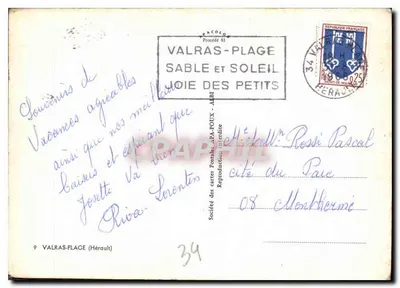 PRODUCED
VALRAS-PLAGE
SABLE ET SOLEIL
JOIE DES PETITS
34 VAL
HERAULT
REPUBLIQUE FRANCAISE
0,25
Souvenirs de
Vacances agréables
ainsi que nos meilleurs
baisers et espérant que
Josette va bien
Riva Lorentin
Société des cartes Postales APA-POUX - ALBI
Reproduction interdite
Mr et Mme Rossi Pascal
cité du Parc
08 Monthermé
9 VALRAS-PLAGE (Hérault)
34